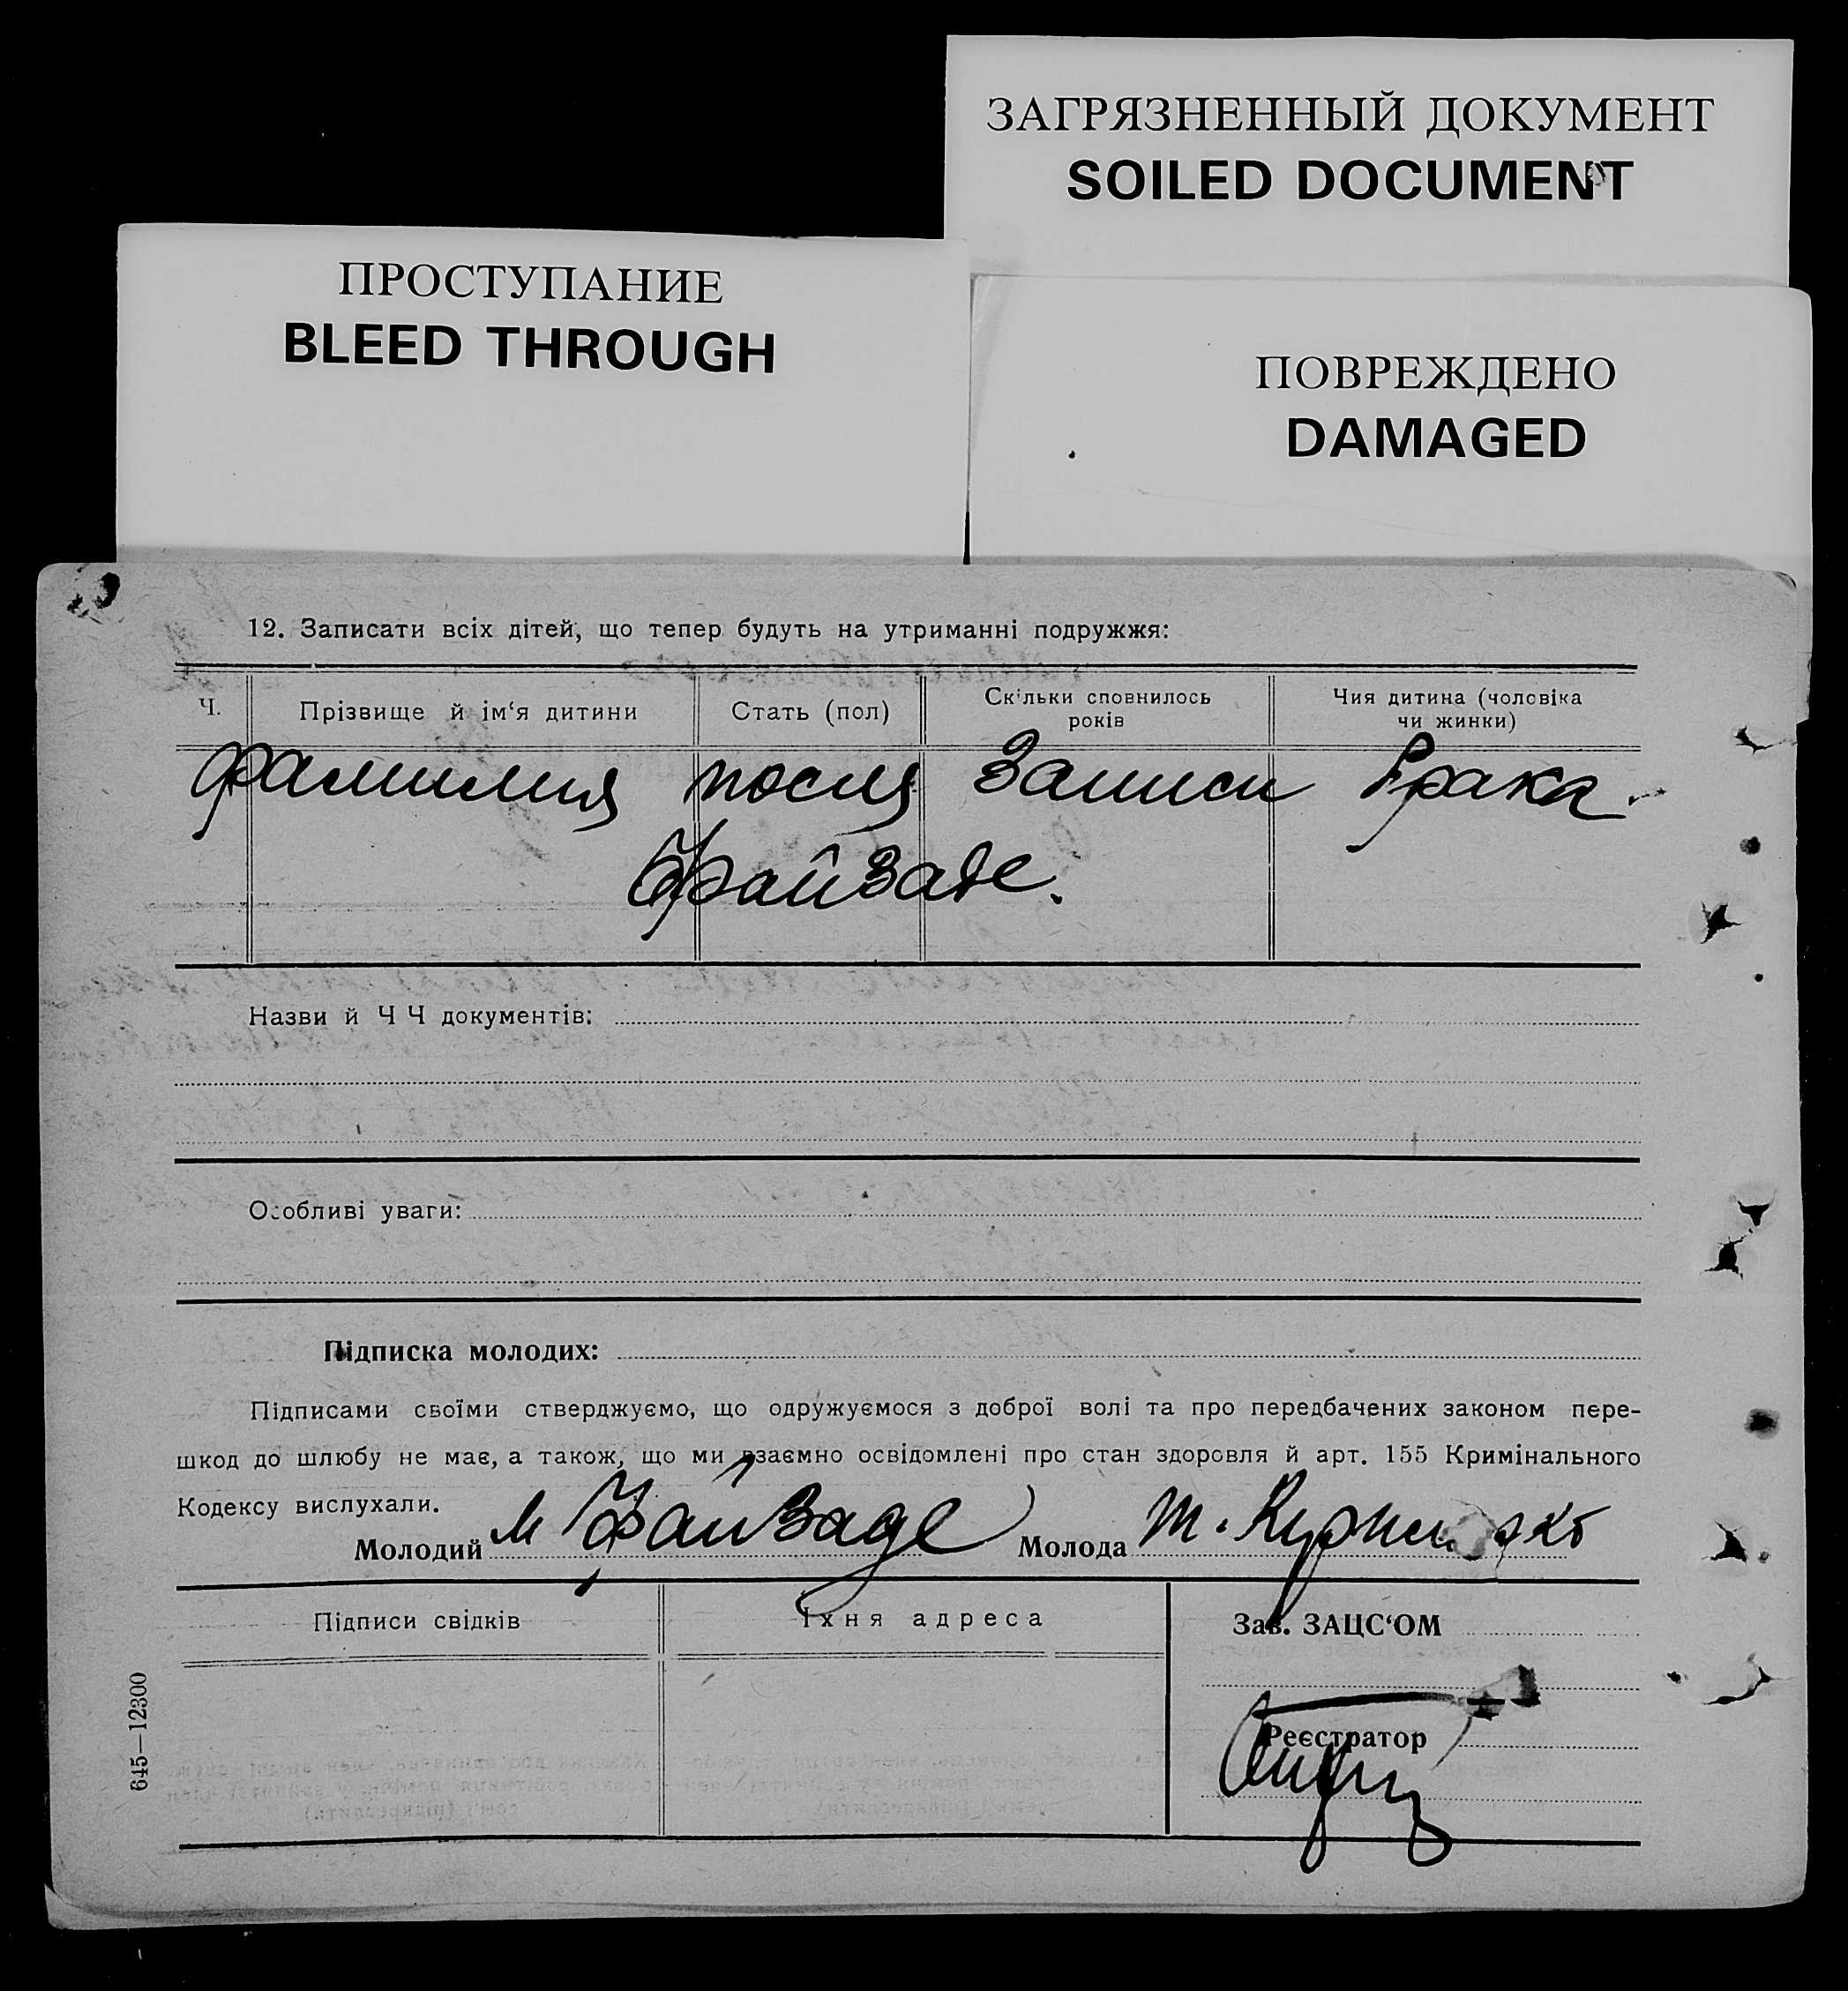 ЗАГРЯЗНЕННЫЙ ДОКУМЕНТ
SOILED DOCUMENT
ПРОСТУПАНИЕ
BLEED THROUGH
ПОВРЕЖДЕНО
DAMAGED
12. Записати всіх дітей, що тепер будуть на утриманні подружжя:
Ч. Прізвище й ім‘я дитини Стать (пол) Скільки сповнилось років Чия дитина (чоловіка чи жинки)
Фамилия после записи брака.
Файзаде.
Назви й Ч Ч документів:
Особливі уваги:
Підписка молодих:
Підписами своїми стверджуємо, що одружуємося з доброї волі та про передбачених законом пере-
шкод до шлюбу не має, а також, що ми взаємно освідомлені про стан здоровля й арт. 155 Кримінального
Кодексу вислухали.
Молодий М Файзаде Молода Т.
Підписи свідків Їхня адреса Зав. ЗАЦС‘ОМ
Реєстратор
645—12300